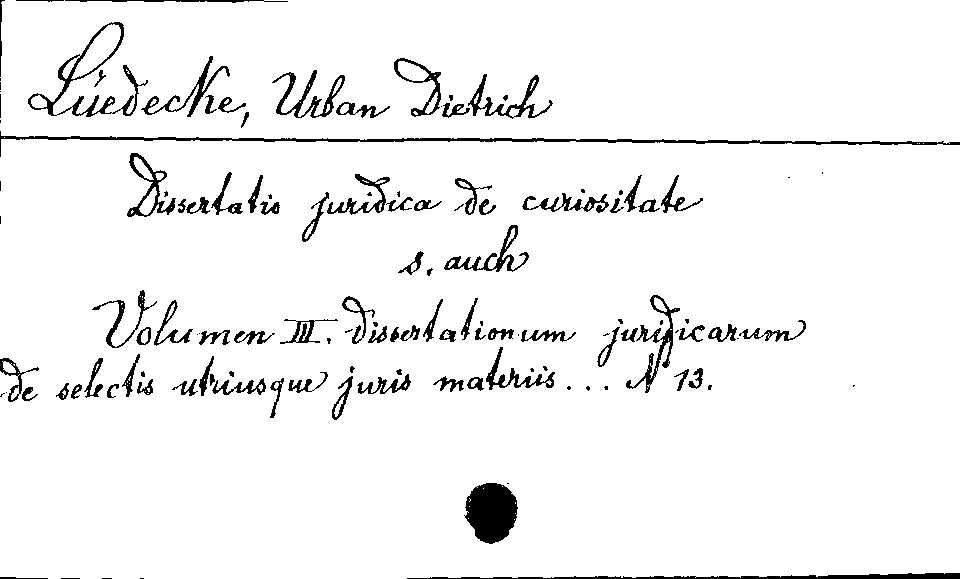 Lüedecke, Urban Dietrich
Dissertatio juridica de curiositate
s. auch
Volumen III. dissertationum juridicarum
de selectis utriusque juris materiis... N 13.